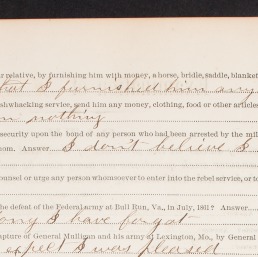 or relative, by furnishing him with money, a horse, bridle, saddle, blanket
that I furnished him any
shwhacking service, send him any money, clothing, food or other articles
nothing
security upon the bond of any person who had been arrested by the mili
om. Answer I don't believe I
ounsel or urge any person whomsoever to enter into the rebel service, or to
the defeat of the Federal army at Bull Run, Va., in July, 1861? Answer
I have forgot
apture of General Mulligan and his army at Lexington, Mo., by General
expect I was pleased